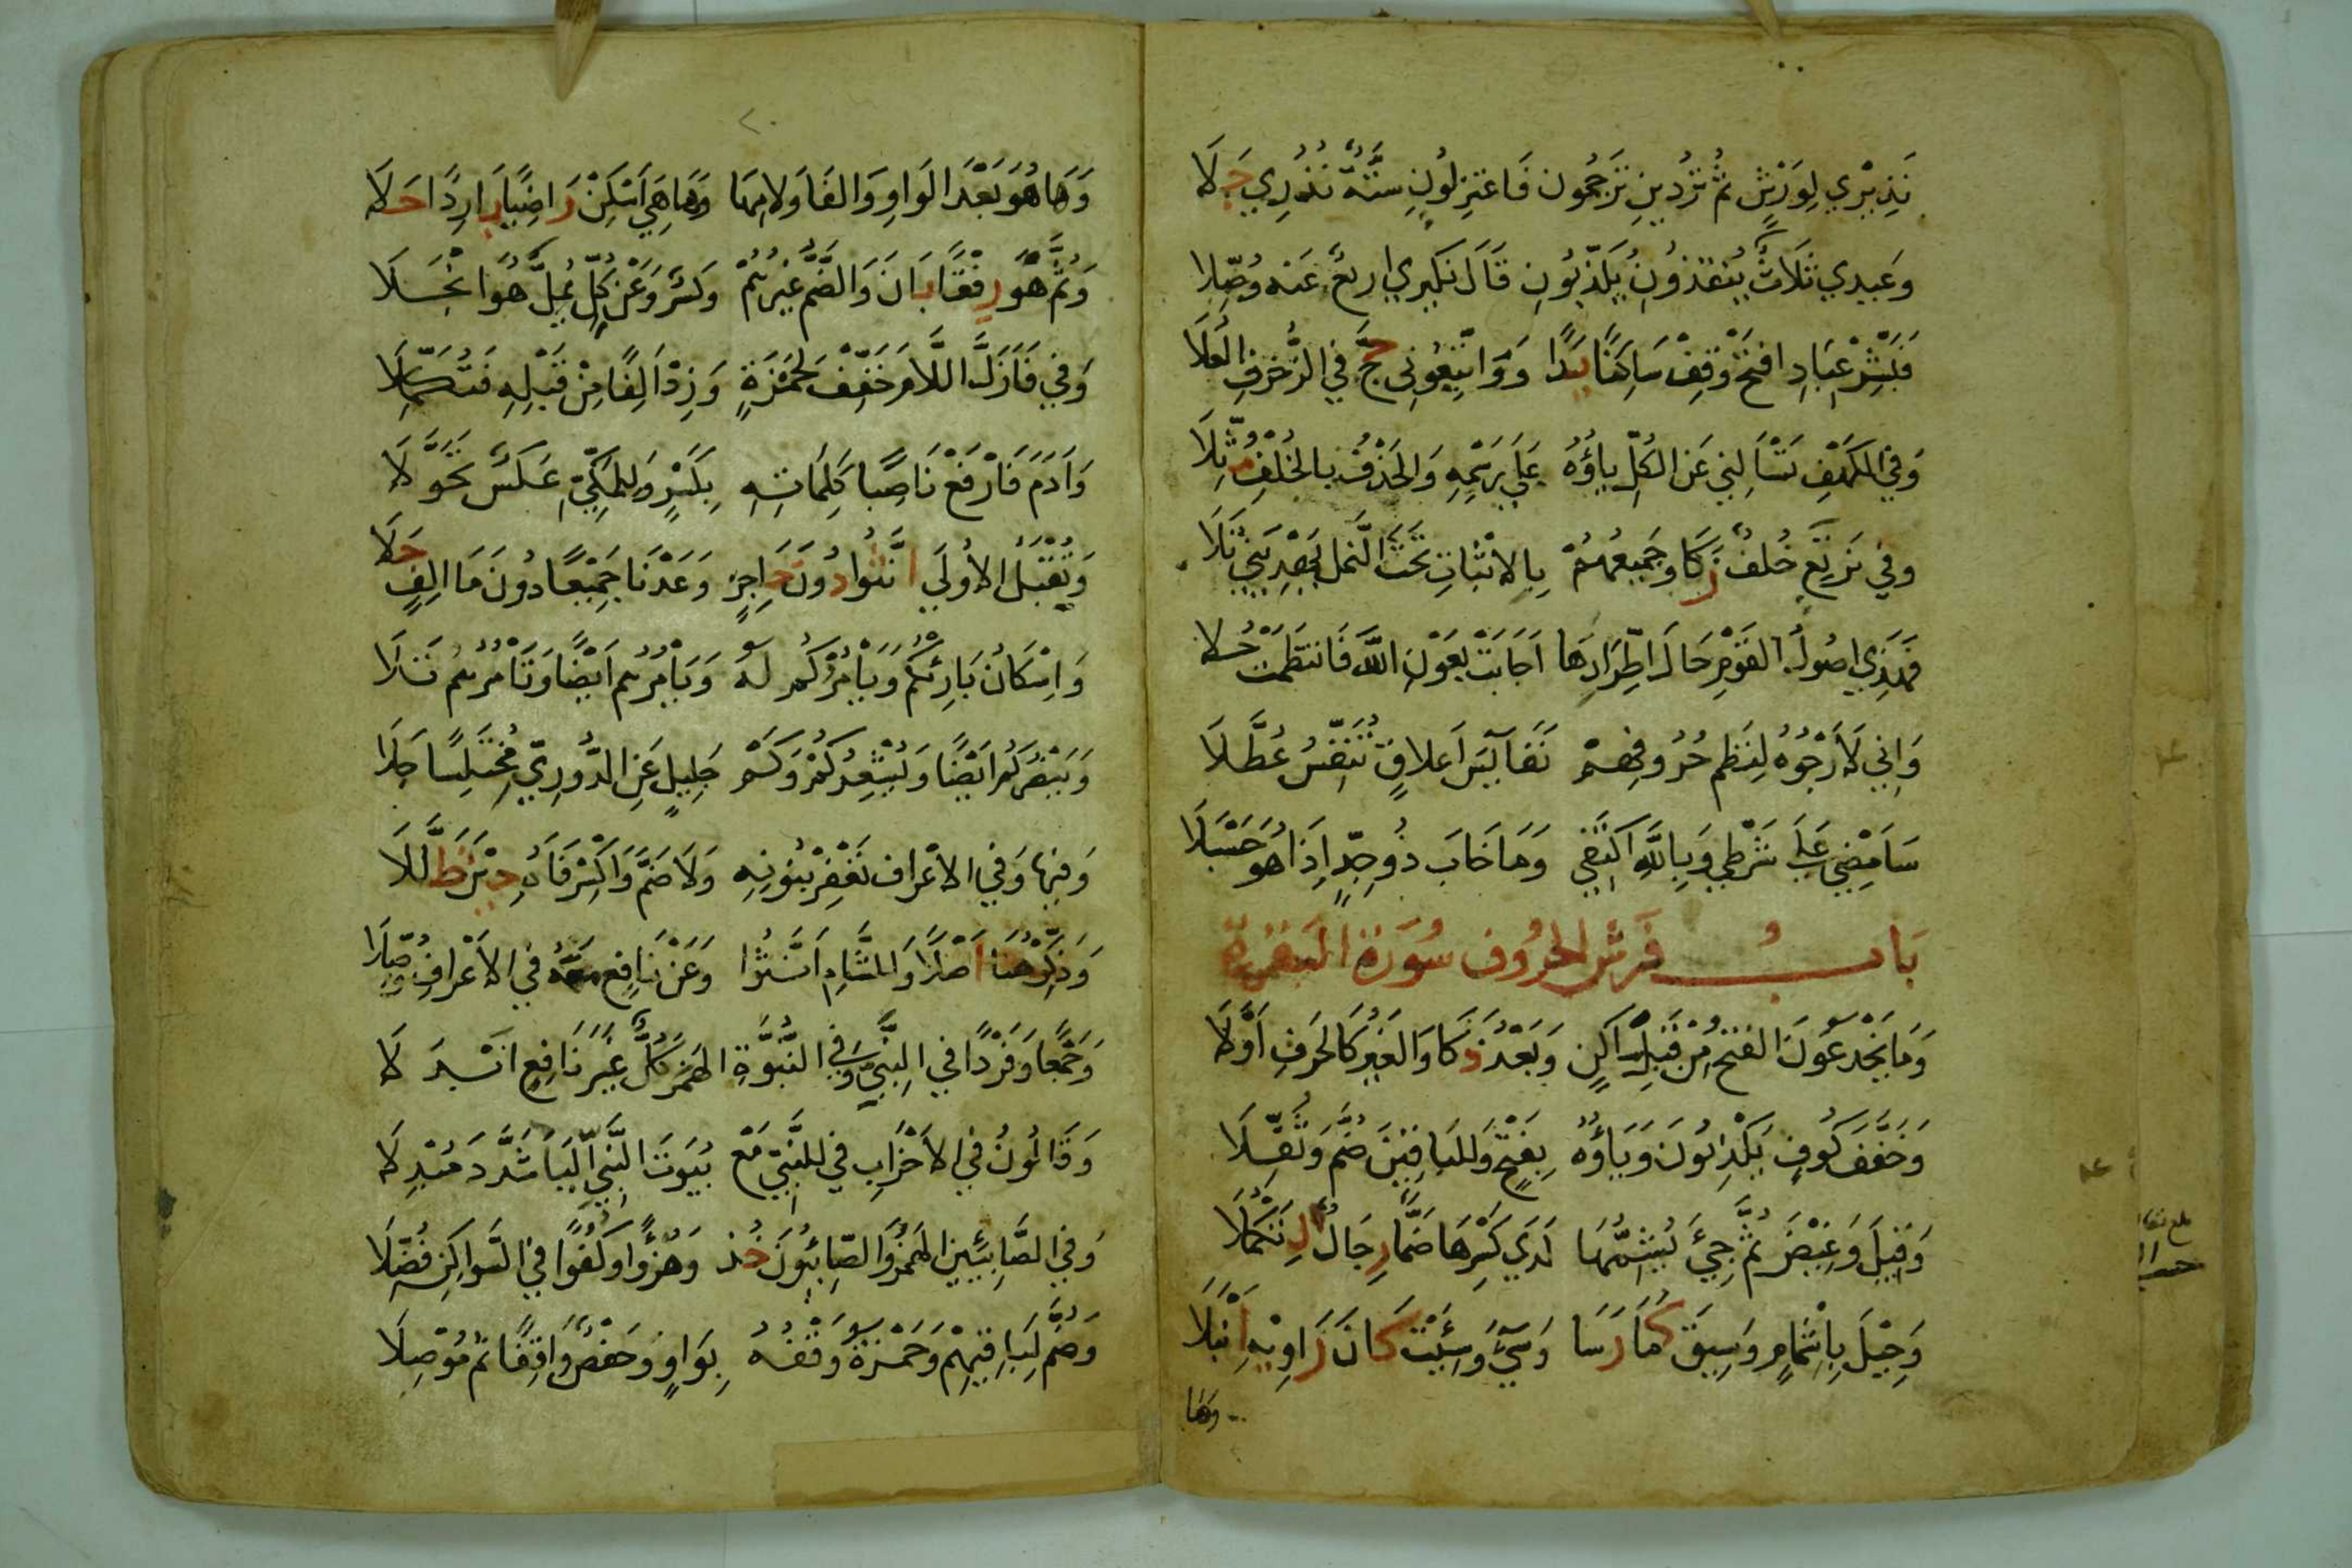 نَذِيرِي لِوَرْشٍ ثُمَّ تُرْدِينِ تَرْجُمُونِ فَاعْتَزِلُونِ سِتَّةٌ نُذُرِي جَلَا
وَعِيدِي ثَلَاثٌ يُنْقِذُونِ يُكَذِّبُونِ قَالَ نَكِيرِي أَرْبَعٌ عَنْهُ وُصِّلَا
فَبَشِّرْ عِبَادِ افْتَحْ وَقِفْ سَاكِنًا يَدًا وَوَاتَّبِعُونِي حَجَّ فِي الزُّخْرُفِ الْعُلَا
وَفِي الْكَهْفِ تَسْأَلْنِي عَنِ الْكُلِّ يَاؤُهُ عَلَى رَسْمِهِ وَالْحَذْفُ بِالْخُلْفِ مُثِّلَا
وَفِي نَرْتَعِ خُلْفٌ زَكَا وَجَمِيعُهُمْ بِالْاثْبَاتِ تَحْتَ النَّمْلِ يَهْدِيَنِي تَلَا
فَهَذِي أُصُولُ الْقَوْمِ حَالَ اطِّرَادِهَا أَجَابَتْ بِعَوْنِ اللَّهِ فَانْتَظَمَتْ حُلَا
وَإِنِّي لَأَرْجُوهُ لِنَظْمِ حُرُوفِهِمْ نَفَائِسَ أَعْلَاقٍ تُنَفِّسُ عُطَّلَا
سَأَمْضِي عَلَى شَرْطِي وَبِاللَّهِ أَكْتَفِي وَمَا خَابَ ذُو جِدٍّ إِذَا هُوَ حَسْبَلَا
بَابُ فَرْشِ الْحُرُوفِ سُورَةُ الْبَقَرَةِ
وَمَا يَخْدَعُونَ الْفَتْحُ مِنْ قَبْلِ سَاكِنٍ وَبَعْدُ ذَكَا وَالْغَيْرُ كَالْحَرْفِ أَوَّلَا
وَخَفَّفَ كُوفٍ يَكْذِبُونَ وَيَاؤُهُ بِفَتْحٍ وَلِلْبَاقِينَ ضُمَّ وَثُقِّلَا
وَقِيلَ وَغِيضَ ثُمَّ جِيءَ يُشِمُّهَا لَدَى كَسْرِهَا ضَمًّا رِجَالٌ لِتَكْمُلَا
وَحِيلَ بِإِشْمَامٍ وَسِيقَ كَمَا رَسَا وَسِيءَ وَسِيئَتْ كَانَ رَاوِيهِ أَنْبَلَا
وَهَا
٢٠
وَهَا هُوَ بَعْدَ الْوَاوِ وَالْفَا وَلَامِهَا وَهَا هِيَ أَسْكِنْ رَاضِيًا بَارِدًا حَلَا
وَثُمَّ هْوَ رِفْقًا بَانَ وَالضَّمُّ غَيْرُهُمْ وَكَسْرٌ وَعَنْ كُلٍّ يُمِلَّ هُوَ انْجَلَا
وَفِي فَأَزَلَّ اللَّامَ خَفِّفْ لِحَمْزَةٍ وَزِدْ أَلِفًا مِنْ قَبْلِهِ فَتُكَمِّلَا
وَآدَمَ فَارْفَعْ نَاصِبًا كَلِمَاتِهِ بِكَسْرٍ وَلِلْمَكِّيِّ عَكْسٌ تَحَوَّلَا
وَيُقْبَلُ الْأُولَى أَنَّثُوا دُونَ حَاجِزٍ وَعَدْنَا جَمِيعًا دُونَ مَا أَلِفٍ حَلَا
وَإِسْكَانُ بَارِئْكُمْ وَيَأْمُرْكُمْ لَهُ وَيَأْمُرْهُمْ أَيْضًا وَتَأْمُرْهُمْ تَلَا
وَيَنْصُرْكُمْ أَيْضًا وَيُشْعِرْكُمْ وَكَمْ جَلِيلٍ عَنِ الدُّورِيِّ مُخْتَلِسًا جَلَا
وَفِيهَا وَفِي الْأَعْرَافِ نَغْفِرْ بِنُونِهِ وَلَا ضَمَّ وَاكْسِرْ فَاءَهُ حِينَ ظَلَّلَا
وَذَكِّرْ هُنَا أَصْلًا وَلِلشَّامِ أَنَّثُوا وَعَنْ نَافِعٍ مَعْهُ فِي الْأَعْرَافِ وُصِّلَا
وَجَمْعًا وَفَرْدًا فِي النَّبِيِّ وَفِي النُّبُوَّةِ الْهَمْزَ كُلٌّ غَيْرَ نَافِعٍ ابْدَلَا
وَقَالُونُ فِي الْأَحْزَابِ فِي لِلنَّبِيِّ مَعْ بُيُوتَ النَّبِيِّ الْيَاءَ شَدَّدَ مُبْدِلَا
وَفِي الصَّابِئِينَ الْهَمْزُ وَالصَّابِئُونَ خُذْ وَهُزْؤًا وَكُفْؤًا فِي السَّوَاكِنِ فُصِّلَا
وَضُمَّ لِبَاقِيهِمْ وَحَمْزَةُ وَقْفُهُ بِوَاوٍ وَحَفْصٌ وَاقِفًا ثُمَّ مُوصِلَا